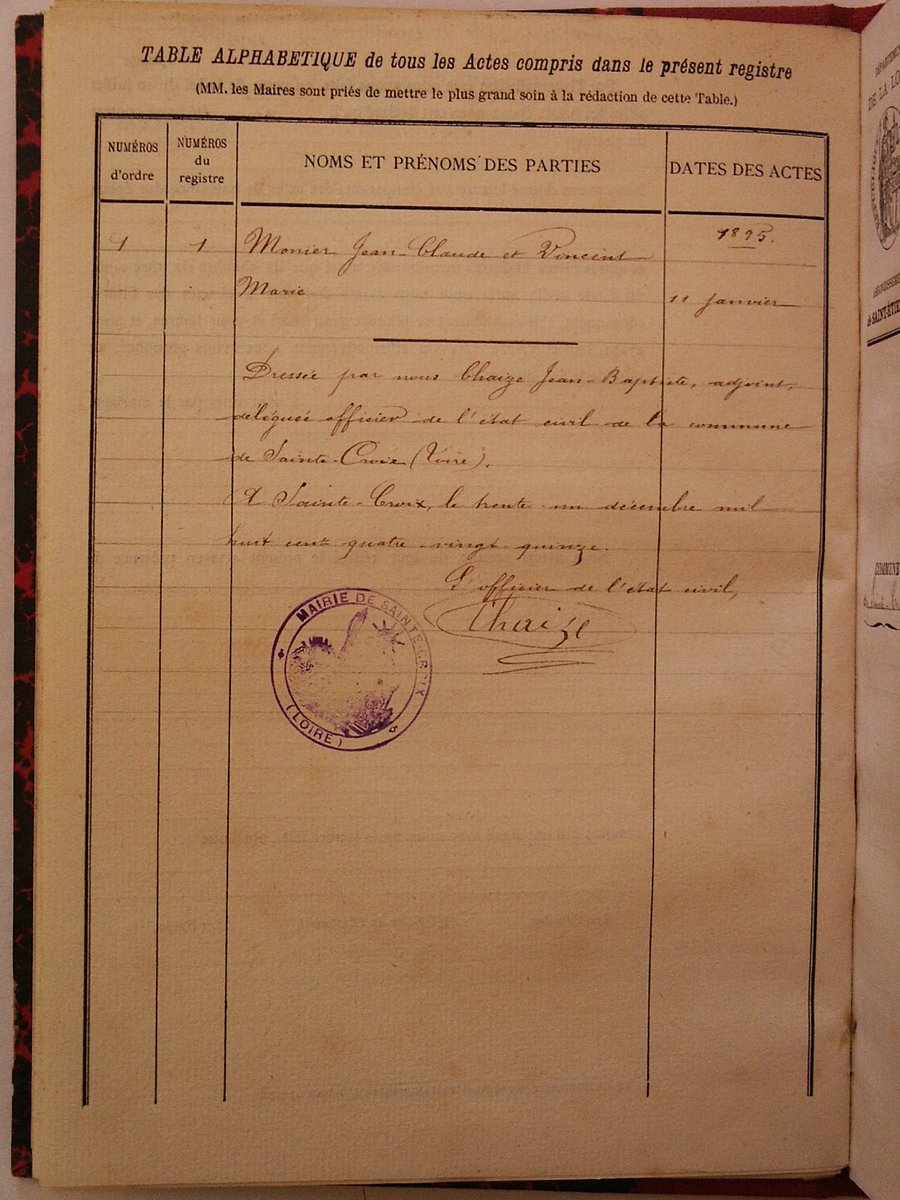 TABLE ALPHABETIQUE de tous les Actes compris dans le présent registre
(MM. les Maires sont priés de mettre le plus grand soin à la rédaction de cette Table.)
NUMÉROS d'ordre
NUMÉROS du registre
NOMS ET PRÉNOMS DES PARTIES
DATES DES ACTES
1895.
1 1 Monier Jean-Claude et Vincent
Marie 11 Janvier
Dressée par nous Chaize Jean-Baptiste, adjoint,
délégué officier de l'état civil de la commune
de Sainte-Croix (Loire).
A Sainte-Croix, le trente un décembre mil
huit cent quatre-vingt quinze.
L'officier de l'état civil,
Chaize
MAIRIE DE SAINTE-CROIX
(LOIRE)
DE LA
de SAINT-ÉTI
COMMUNE